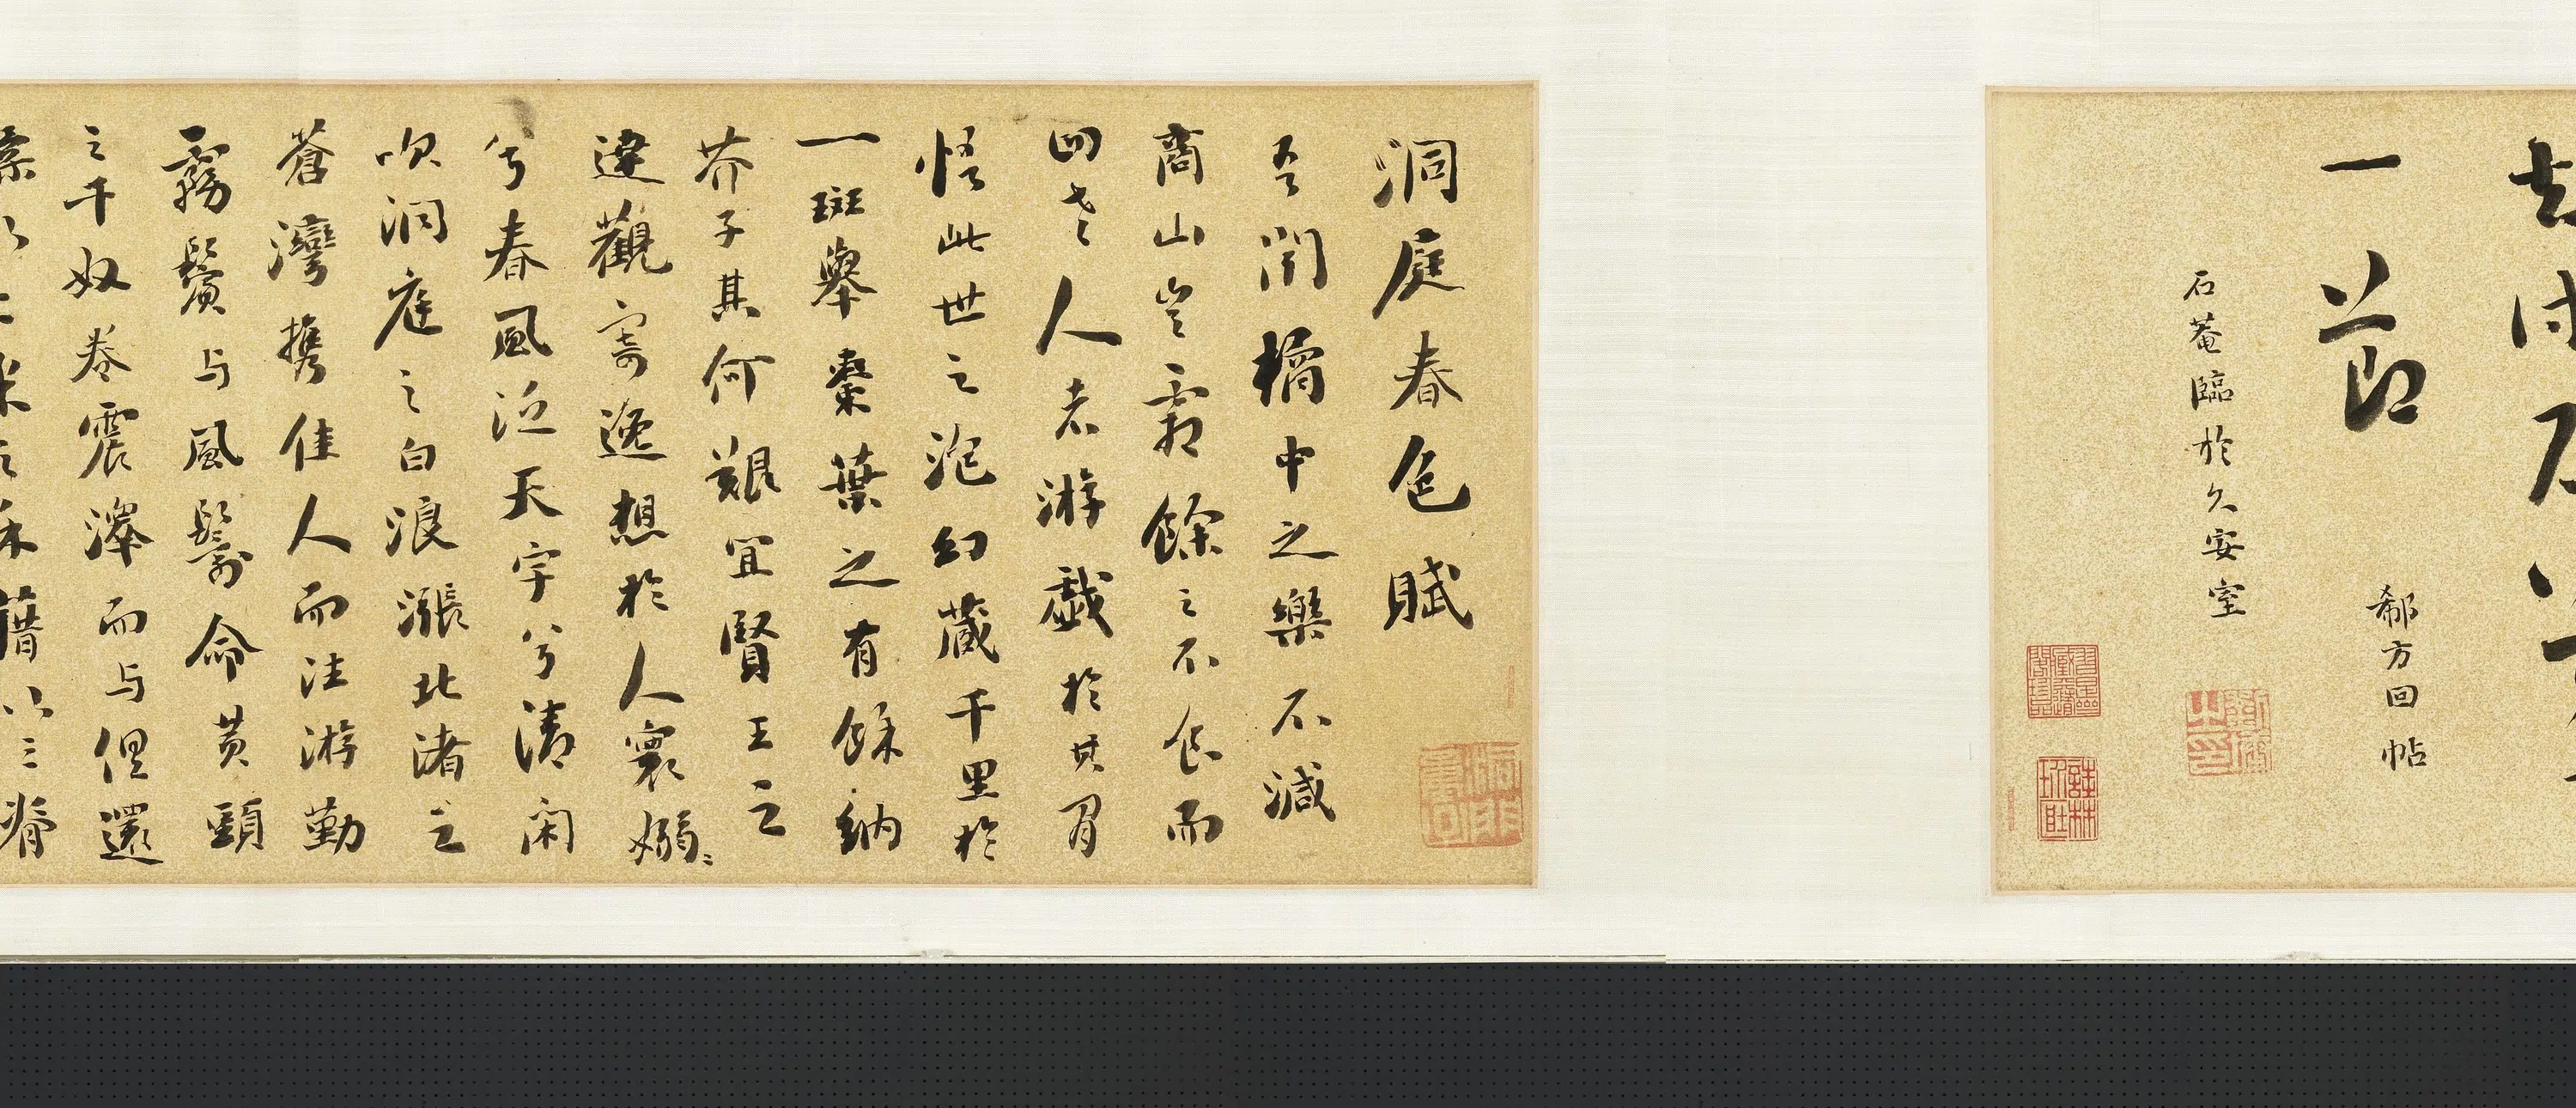 一節
郗方回帖
石菴臨於久安室
洞庭春色賦
吾聞橘中之樂不減
商山豈霜餘之不食而
四老人者游戲於其間
悟此世之泡幻藏千里於
一斑舉棗葉之有餘納
芥子其何艱宜賢王之
達觀寄逸想於人寰嫋〻
兮春風泛天宇兮清閑
吹洞庭之白浪漲北渚之
蒼灣攜佳人而往游勤
霧鬢与風鬟命黃頭
之千奴卷震澤而与俱還
糅以二米之禾藉以三脊